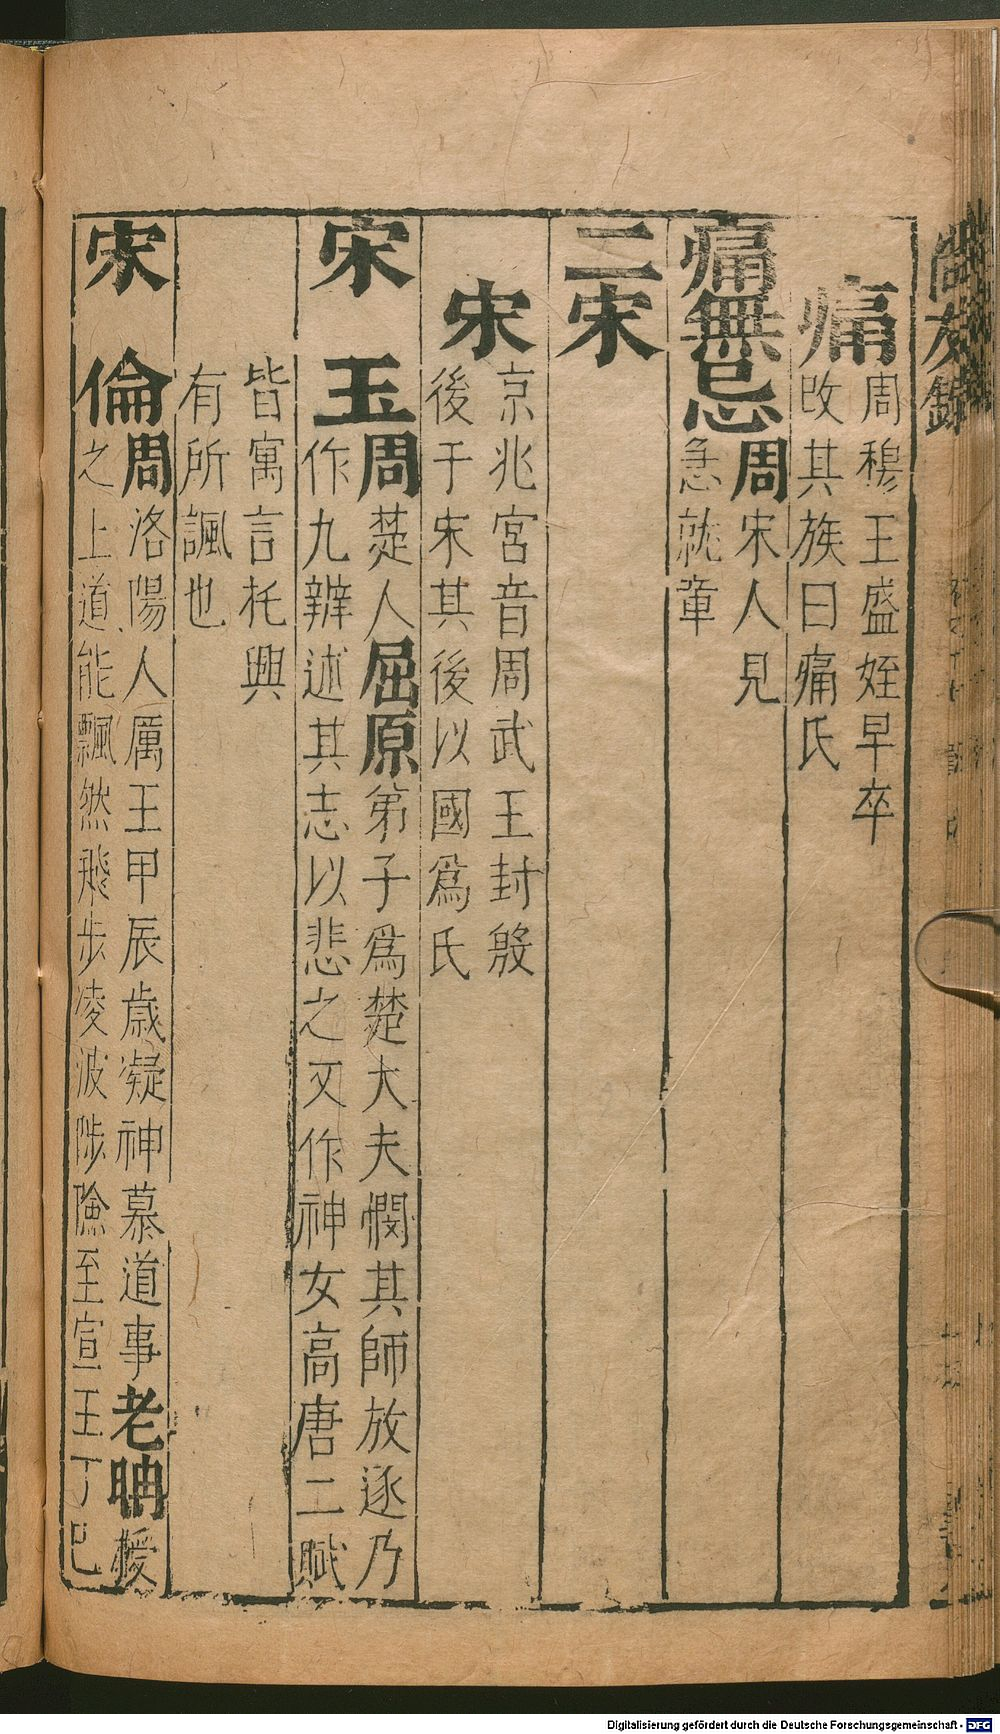 尚友錄
痛
周穆王盛姪早卒
改其族曰痛氏
痛無忌
周宋人見
急就章
二宋
宋
京兆宮音周武王封殷
後于宋其後以國爲氏
宋玉
周楚人屈原弟子爲楚大夫憫其師放逐乃
作九辯述其志以悲之又作神女高唐二賦
皆寓言托興
有所諷也
宋倫
周洛陽人厲王甲辰歲凝神慕道事老聃授
之上道能飄然飛步凌波陟險至宣王丁巳
Digitalisierung gefördert durch die Deutsche Forschungsgemeinschaft - DFG